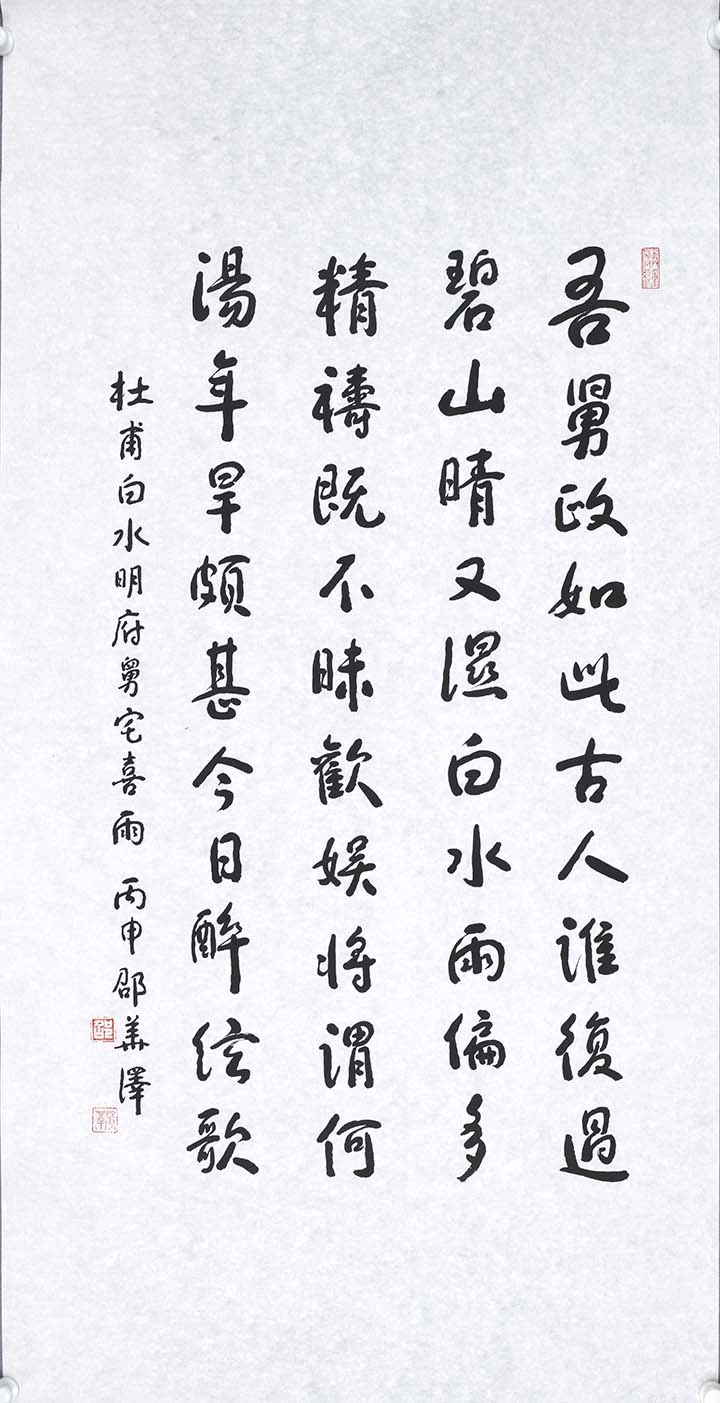 吾舅政如此古人誰復過
碧山晴又濕白水雨偏多
精禱既不昧歡娛將謂何
湯年旱頗甚今日醉弦歌
杜甫白水明府舅宅喜雨 丙申邵華澤